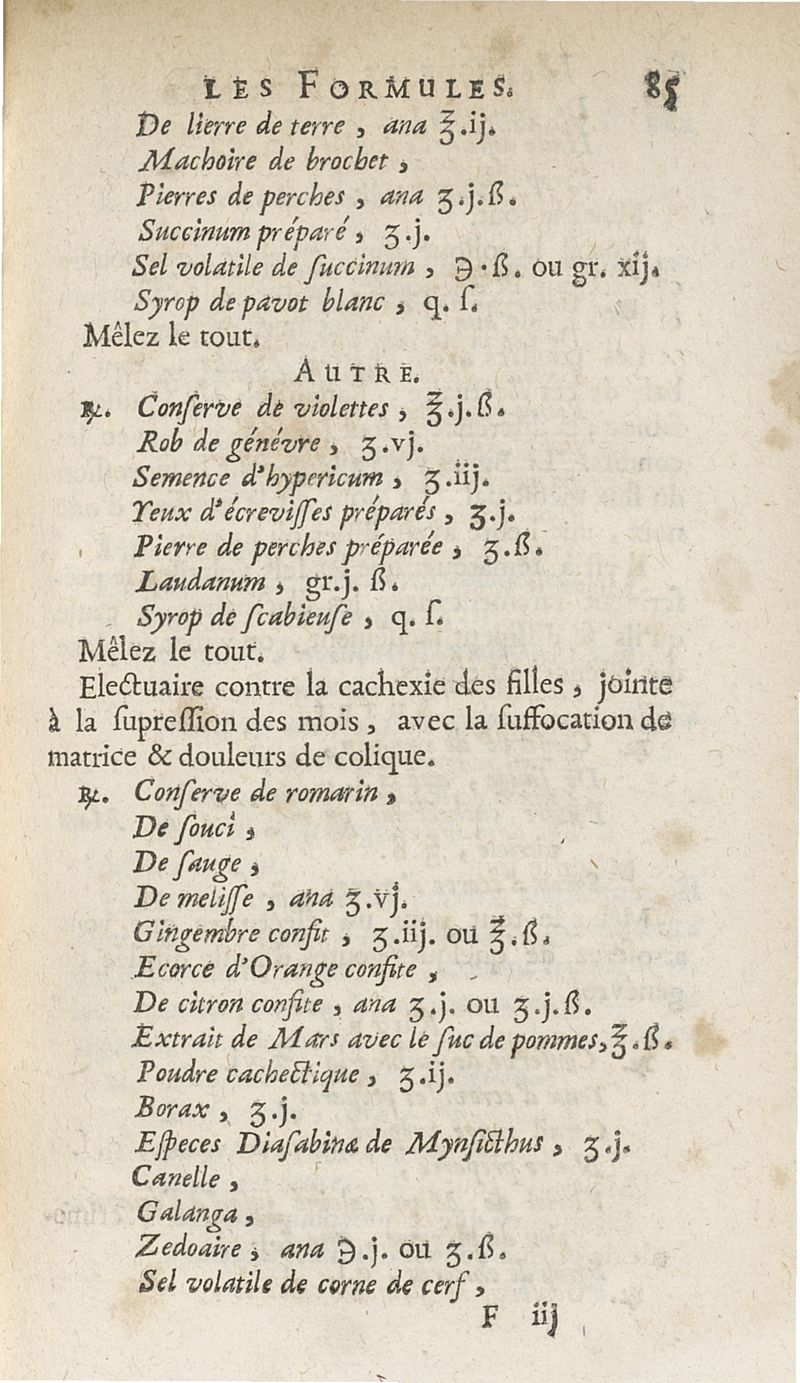 LES FORMULES. 85
De lierre de terre, ana ℥.ij.
Machoire de brochet,
Pierres de perches, ana ʒ.j.ß.
Succinum préparé, ʒ.j.
Sel volatile de ſuccinum, ℈.ß. ou gr. xij.
Syrop de pavot blanc, q. ſ.
Mêlez le tout.
AUTRE.
℞. Conſerve de violettes, ℥.j.ß.
Rob de génévre, ʒ.vj.
Semence d'hypericum, ʒ.iij.
Yeux d'écreviſſes préparés, ʒ.j.
Pierre de perches préparée, ʒ.ß.
Laudanum, gr.j. ß.
Syrop de ſcabieuſe, q. ſ.
Mêlez le tout.
Electuaire contre la cachexie des filles, jointe
à la ſupreſſion des mois, avec la ſuffocation de
matrice & douleurs de colique.
℞. Conſerve de romarin,
De ſouci,
De ſauge,
De meliſſe, ana ʒ.vj.
Gingembre confit, ʒ.iij. ou ℥.ß.
Ecorce d'Orange confite,
De citron confite, ana ʒ.j. ou ʒ.j.ß.
Extrait de Mars avec le ſuc de pommes, ℥.ß.
Poudre cachectique, ʒ.ij.
Borax, ʒ.j.
Eſpeces Diaſabinæ de Mynſicthus, ʒ.j.
Canelle,
Galanga,
Zedoaire, ana ℈.j. ou ʒ.ß.
Sel volatile de corne de cerf,
F iij